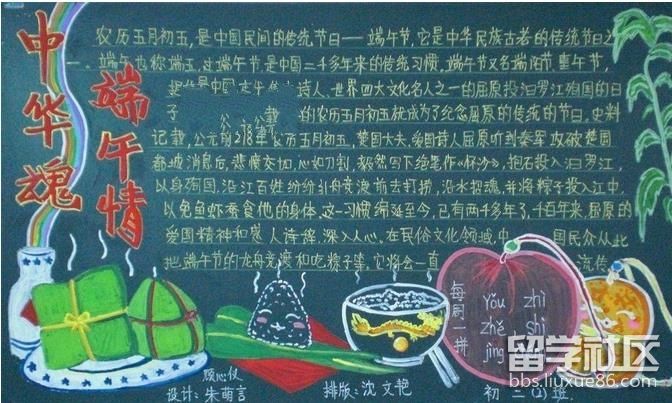 中华魂
端午情
农历五月初五,是中国民间的传统节日——端午节,它是中华民族古老的传统节日之
一。端午也称端五,
端午节是中国二千多年来的传统习惯,端午节又名端阳节重午节,
诗人、世界四大文化名人之一的屈原投汨罗江殉国的日
子
的农历五月初五就成为了纪念屈原的传统的节日。史料
记载,公元前278年农历五月初五,楚国大夫、爱国诗人屈原听到秦军攻破楚国
都城消息后,悲愤交加,心如刀割,毅然写下绝笔作《怀沙》,抱石投入汨罗江,
以身殉国。沿江百姓纷纷引舟竞渡前去打捞,沿水招魂,并将粽子投入江中,
以免鱼虾蚕食他的身体。这一习惯绵延至今,已有两千多年了,千百年来,屈原的
爱国精神和感人诗辞,深入人心。在民俗文化领域,中 国民众从此
把端午节的龙舟竞渡和吃粽子等,它将会一直 流传
每周一拼
yǒu zhì
zhě shì
jìng
设计:朱萌言
排版:沈文艳
初二(1)班
留学社区
bbs.liuxue86.com